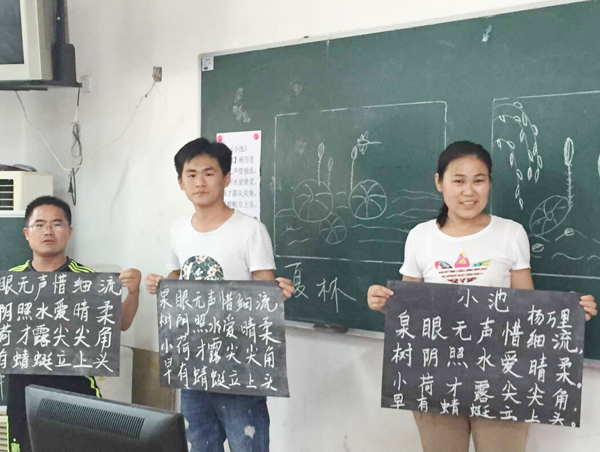 眼无声惜细流
阴照水爱晴柔
荷才露尖尖角
有蜻蜓立上头
泉眼无声惜细流
树阴照水爱晴柔
小荷才露尖尖角
早有蜻蜓立上头
夏林
小池
杨万里
泉眼无声惜细流，
树阴照水爱晴柔。
小荷才露尖尖角，
早有蜻蜓立上头。